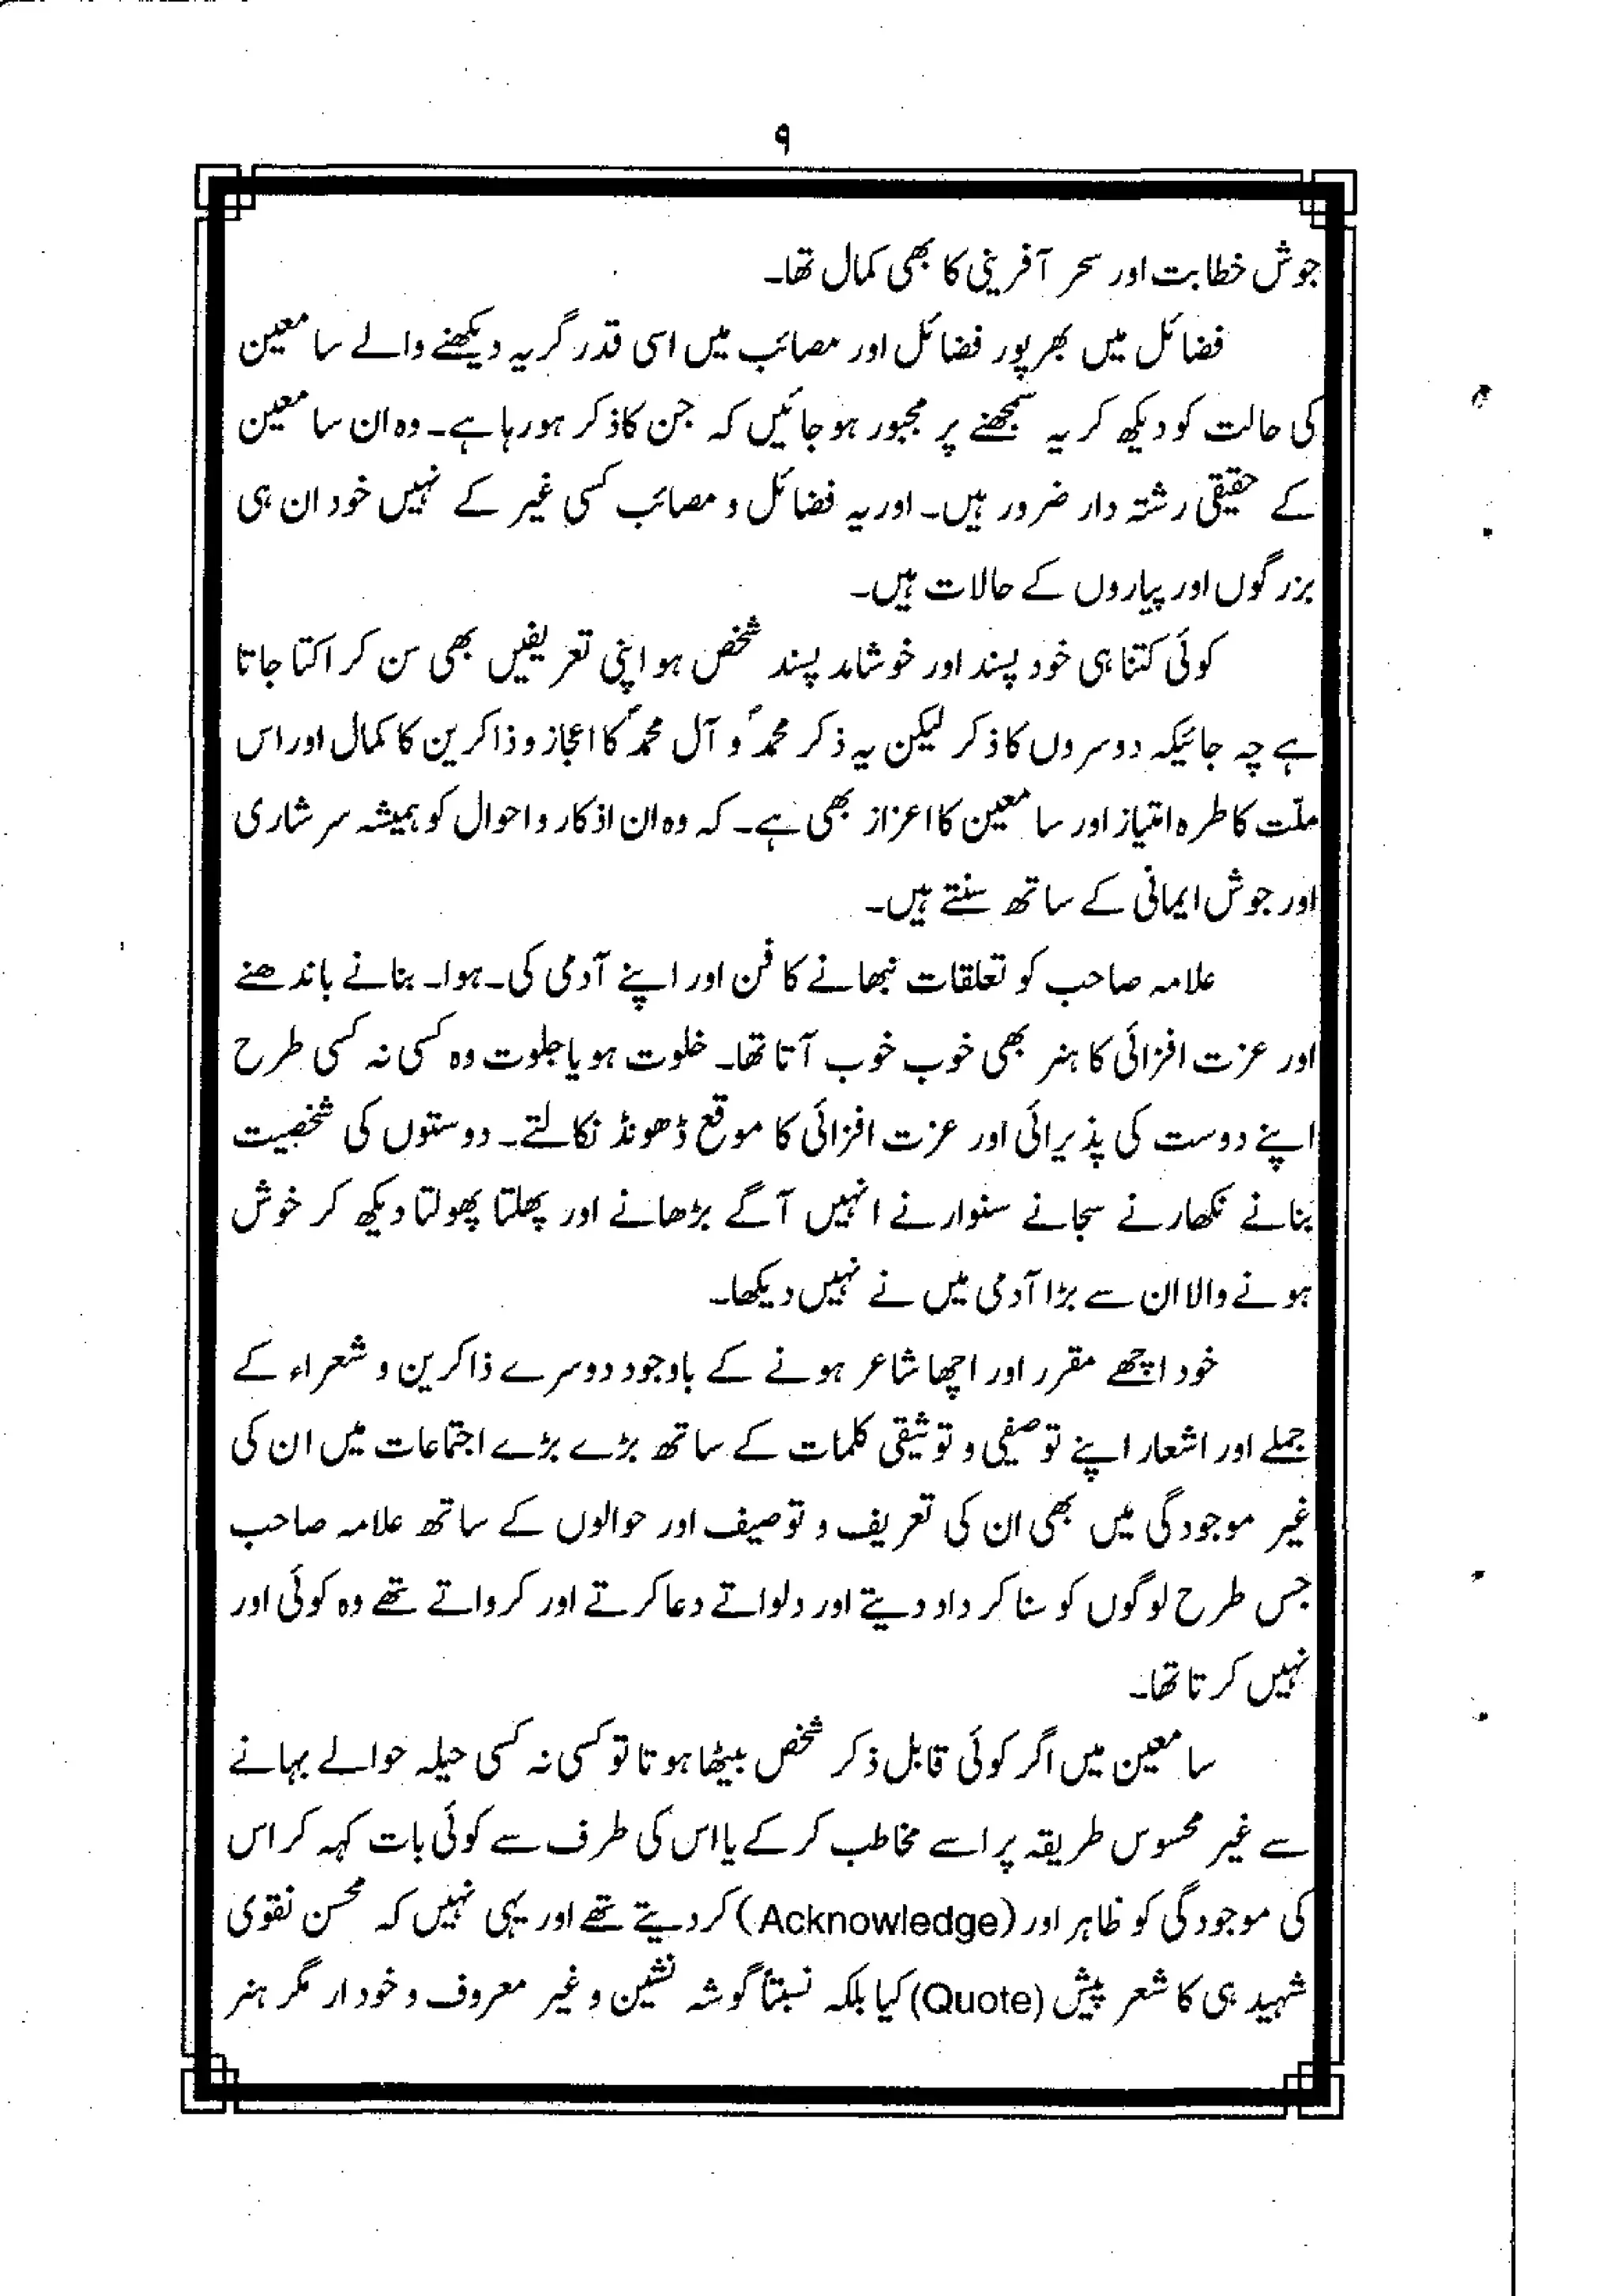 ۹
جوش خطابت اور سحر آفرینی کا بھی کمال تھا۔
فضائل میں بھرپور فضائل اور مصائب میں اسی قدر گریہ دیکھنے والے سامعین
کی حالت کو دیکھ کر یہ سمجھنے پر مجبور ہو جائیں کہ جن کا ذکر ہو رہا ہے۔ وہ ان سامعین
کے حقیقی رشتہ دار ضرور ہیں۔ اور یہ فضائل و مصائب کسی غیر کے نہیں خود ان ہی
بزرگوں اور پیاروں کے حالات ہیں۔
کوئی کتنا ہی خود پسند اور خوشامد پسند شخص ہو اپنی تعریفیں بھی سن کر اکتا جاتا
ہے چہ جائیکہ دوسروں کا ذکر لیکن یہ ذکر محمدؐ و آل محمدؐ کا اعجاز و ذاکرین کا کمال اور اس
ملّت کا طرہ امتیاز اور سامعین کا اعزاز بھی ہے۔ کہ وہ ان اذکار و احوال کو ہمیشہ سرشاری
اور جوش ایمانی کے ساتھ سنتے ہیں۔
علامہ صاحب کو تعلقات نبھانے کا فن اور اپنے آدمی کی۔ ہوا۔ بنانے باندھنے
اور عزت افزائی کا ہنر بھی خوب خوب آتا تھا۔ خلوت ہو یا جلوت وہ کسی نہ کسی طرح
اپنے دوست کی پذیرائی اور عزت افزائی کا موقع ڈھونڈ نکالتے۔ دوستوں کی شخصیت
بنانے نکھارنے سجانے سنوارنے انہیں آگے بڑھانے اور پھلتا پھولتا دیکھ کر خوش
ہونے والا ان سے بڑا آدمی میں نے نہیں دیکھا۔
خود اچھے مقرر اور اچھا شاعر ہونے کے باوجود دوسرے ذاکرین و شعراء کے
جملے اور اشعار اپنے توصیفی و توثیقی کلمات کے ساتھ بڑے بڑے اجتماعات میں ان کی
غیر موجودگی میں بھی ان کی تعریف و توصیف اور حوالوں کے ساتھ علامہ صاحب
جس طرح لوگوں کو سنا کر داد دیتے اور دلواتے دعا کرتے اور کرواتے تھے وہ کوئی اور
نہیں کرتا تھا۔
سامعین میں اگر کوئی قابل ذکر شخص بیٹھا ہوتا تو کسی نہ کسی حیلہ حوالے بہانے
سے غیر محسوس طریقہ پر اسے مخاطب کر کے یا اس کی طرف سے کوئی بات کہہ کر اس
کی موجودگی کو ظاہر اور (Acknowledge) کر دیتے تھے اور یہی نہیں کہ محسن نقوی
شہید ہی کا شعر پیش (Quote) کیا بلکہ نسبتاً گوشہ نشین و غیر معروف و خود دار مگر ہنر